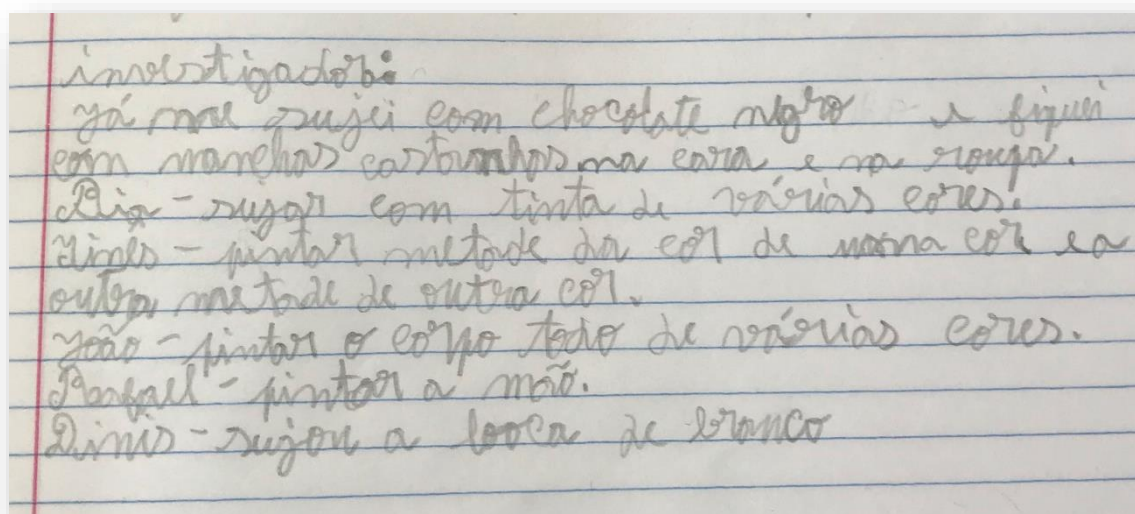 investigador:
Já me sujei com chocolate negro e fiquei
com manchas castanhas na cara e na roupa.
Bia - sujar com tinta de várias cores.
Yinês - pintar metade da cor de uma cor e a
outra metade de outra cor.
João - pintar o corpo todo de várias cores.
Rafael - pintar a mão.
Dinis - sujou a boca de branco